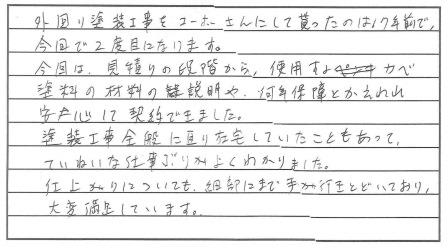 外回り塗装工事をコーホーさんにして貰ったのは17年前で、
今回で2度目になります。
今回は、見積りの段階から、使用する カベ
塗料の材料の説明や、何年保障とか
安心して契約できました。
塗装工事全般に亘り在宅していたこともあって、
ていねいな仕事ぶりがよくわかりました。
仕上がりについても、細部にまで手が行きとどいており、
大変満足しています。